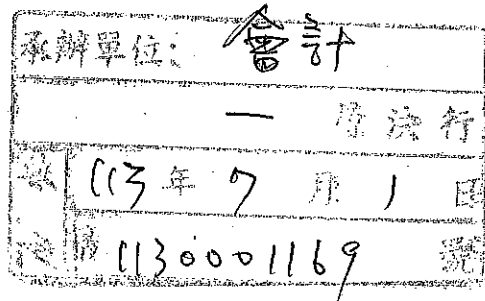 承辦單位：會計
一 層決行
收 113年7月1日
文 第1130001169號